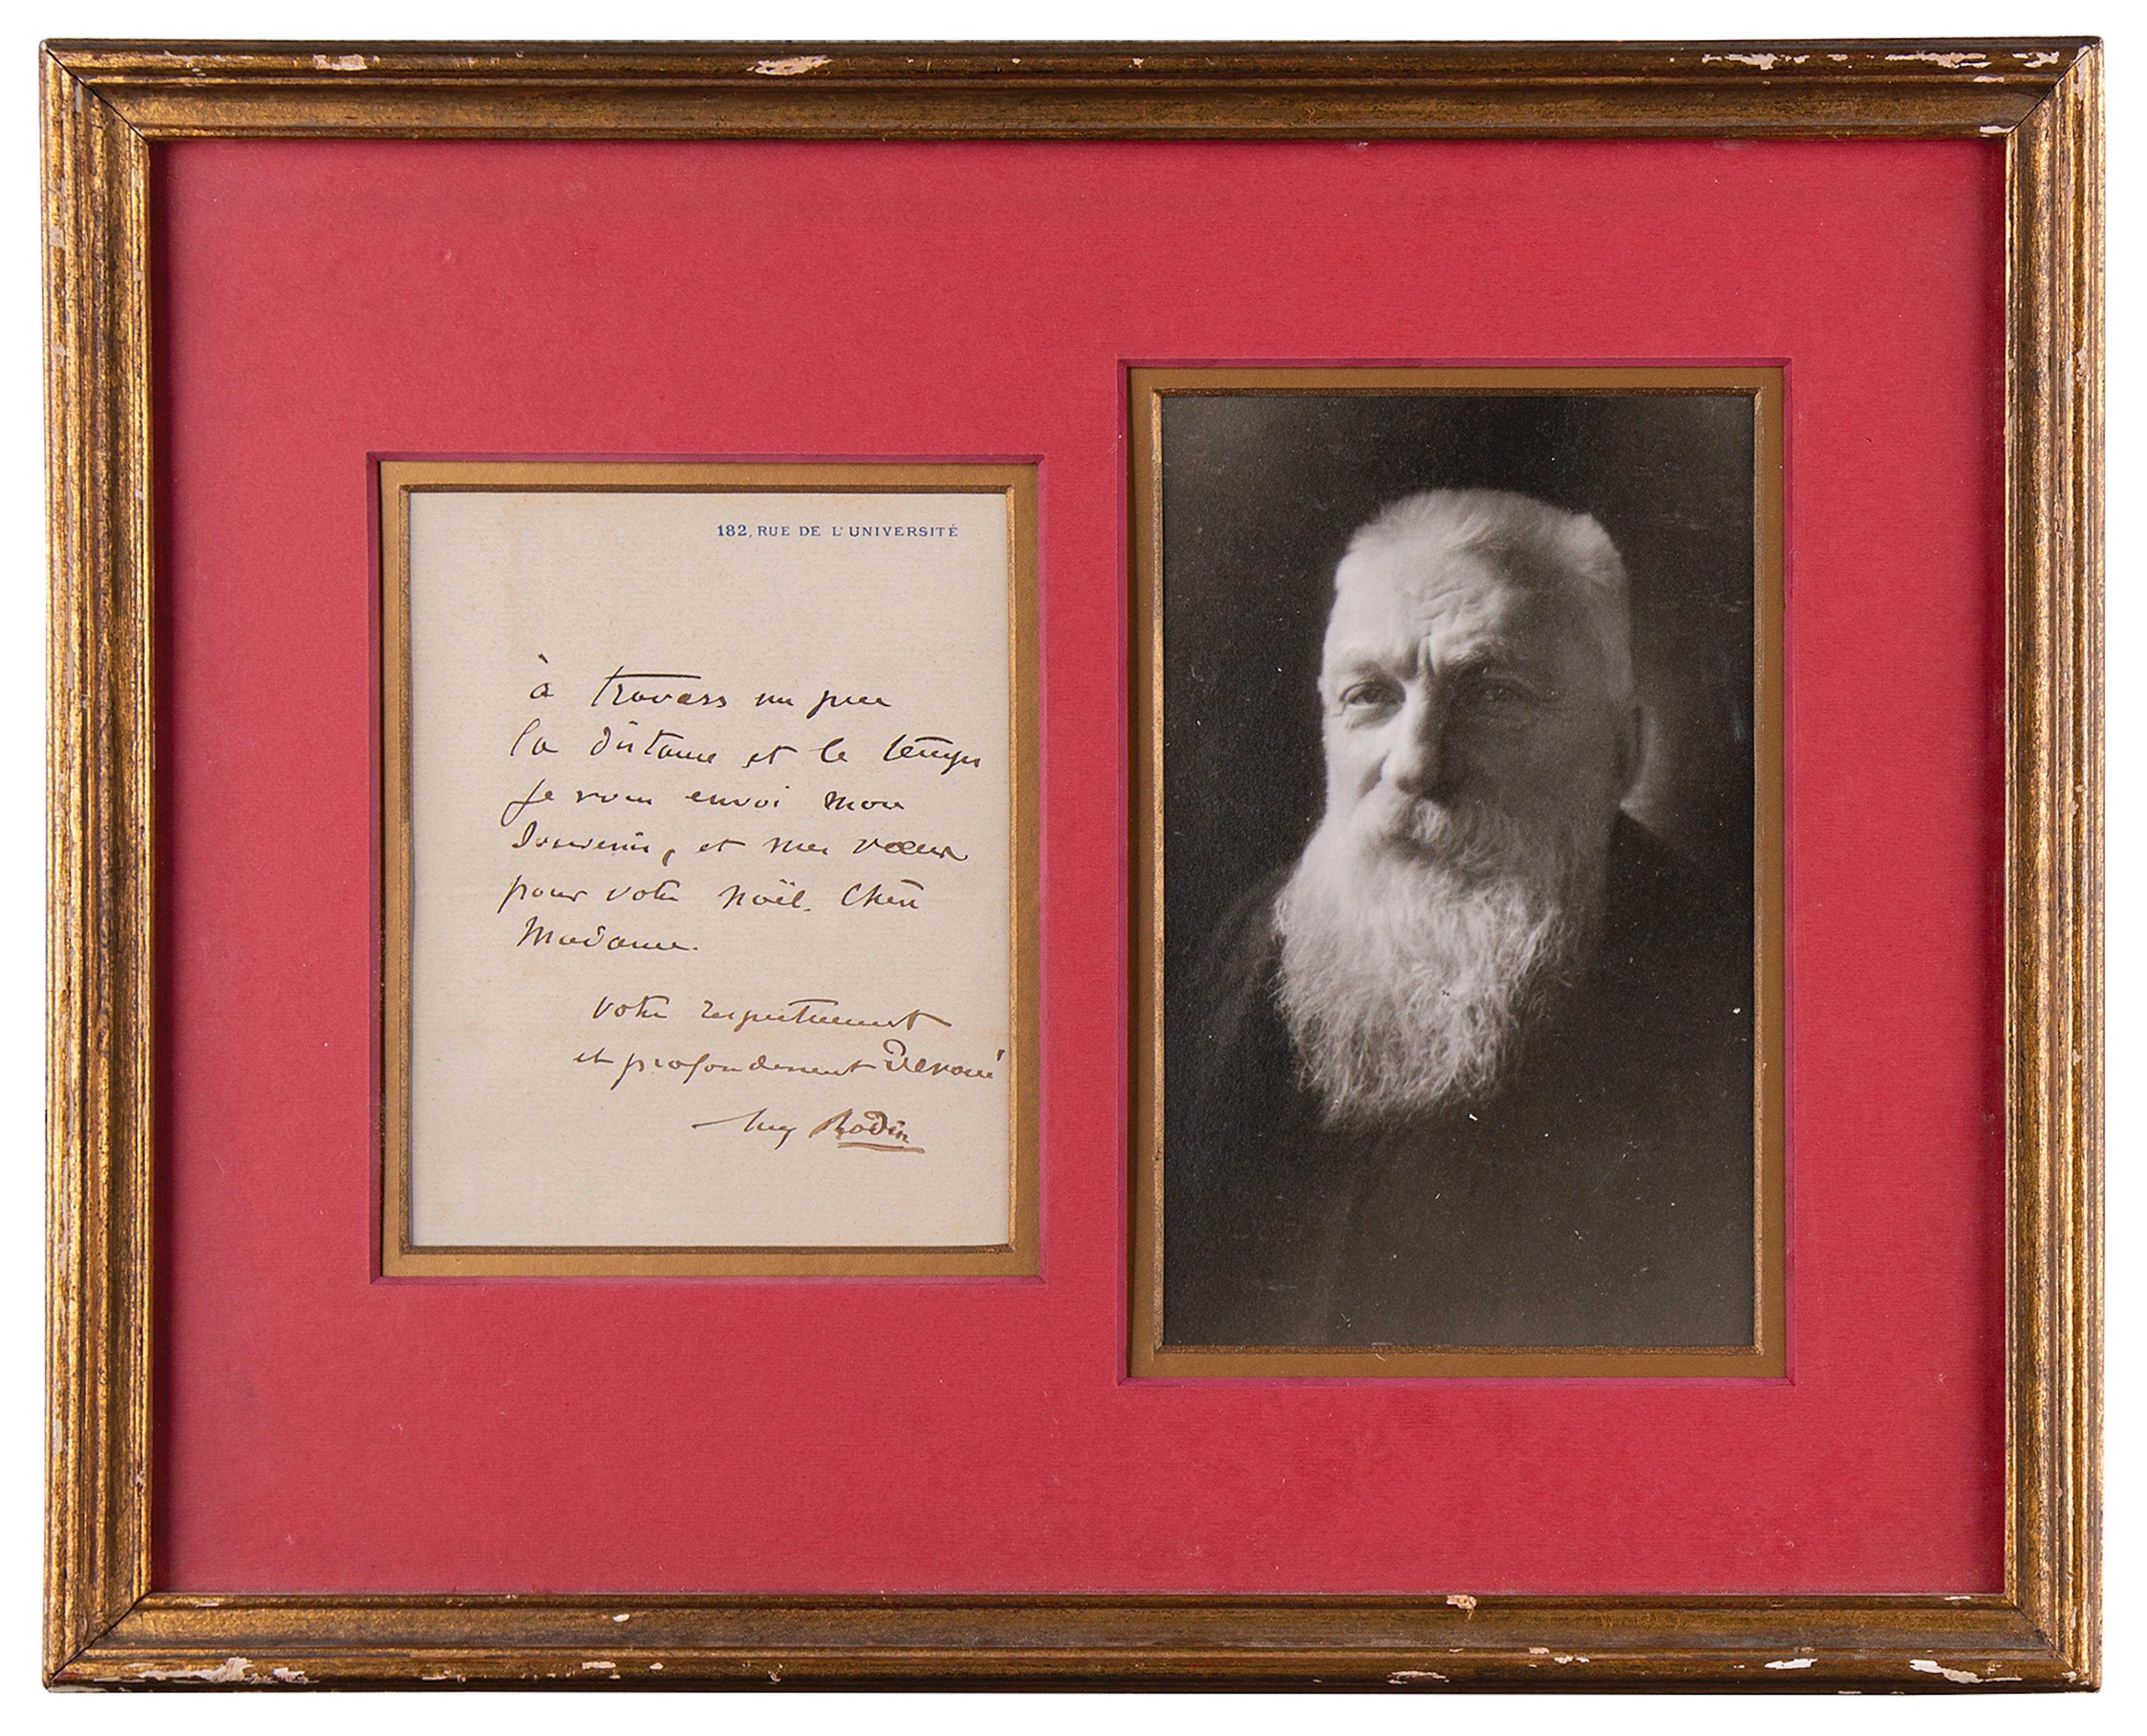 182, RUE DE L'UNIVERSITÉ
à travers un peu
la distance et le temps
je vous envoi mon
souvenir, et mes vœux
pour votre noël. Chère
Madame.
votre respectueusement
et profondement Devoué
Aug Rodin